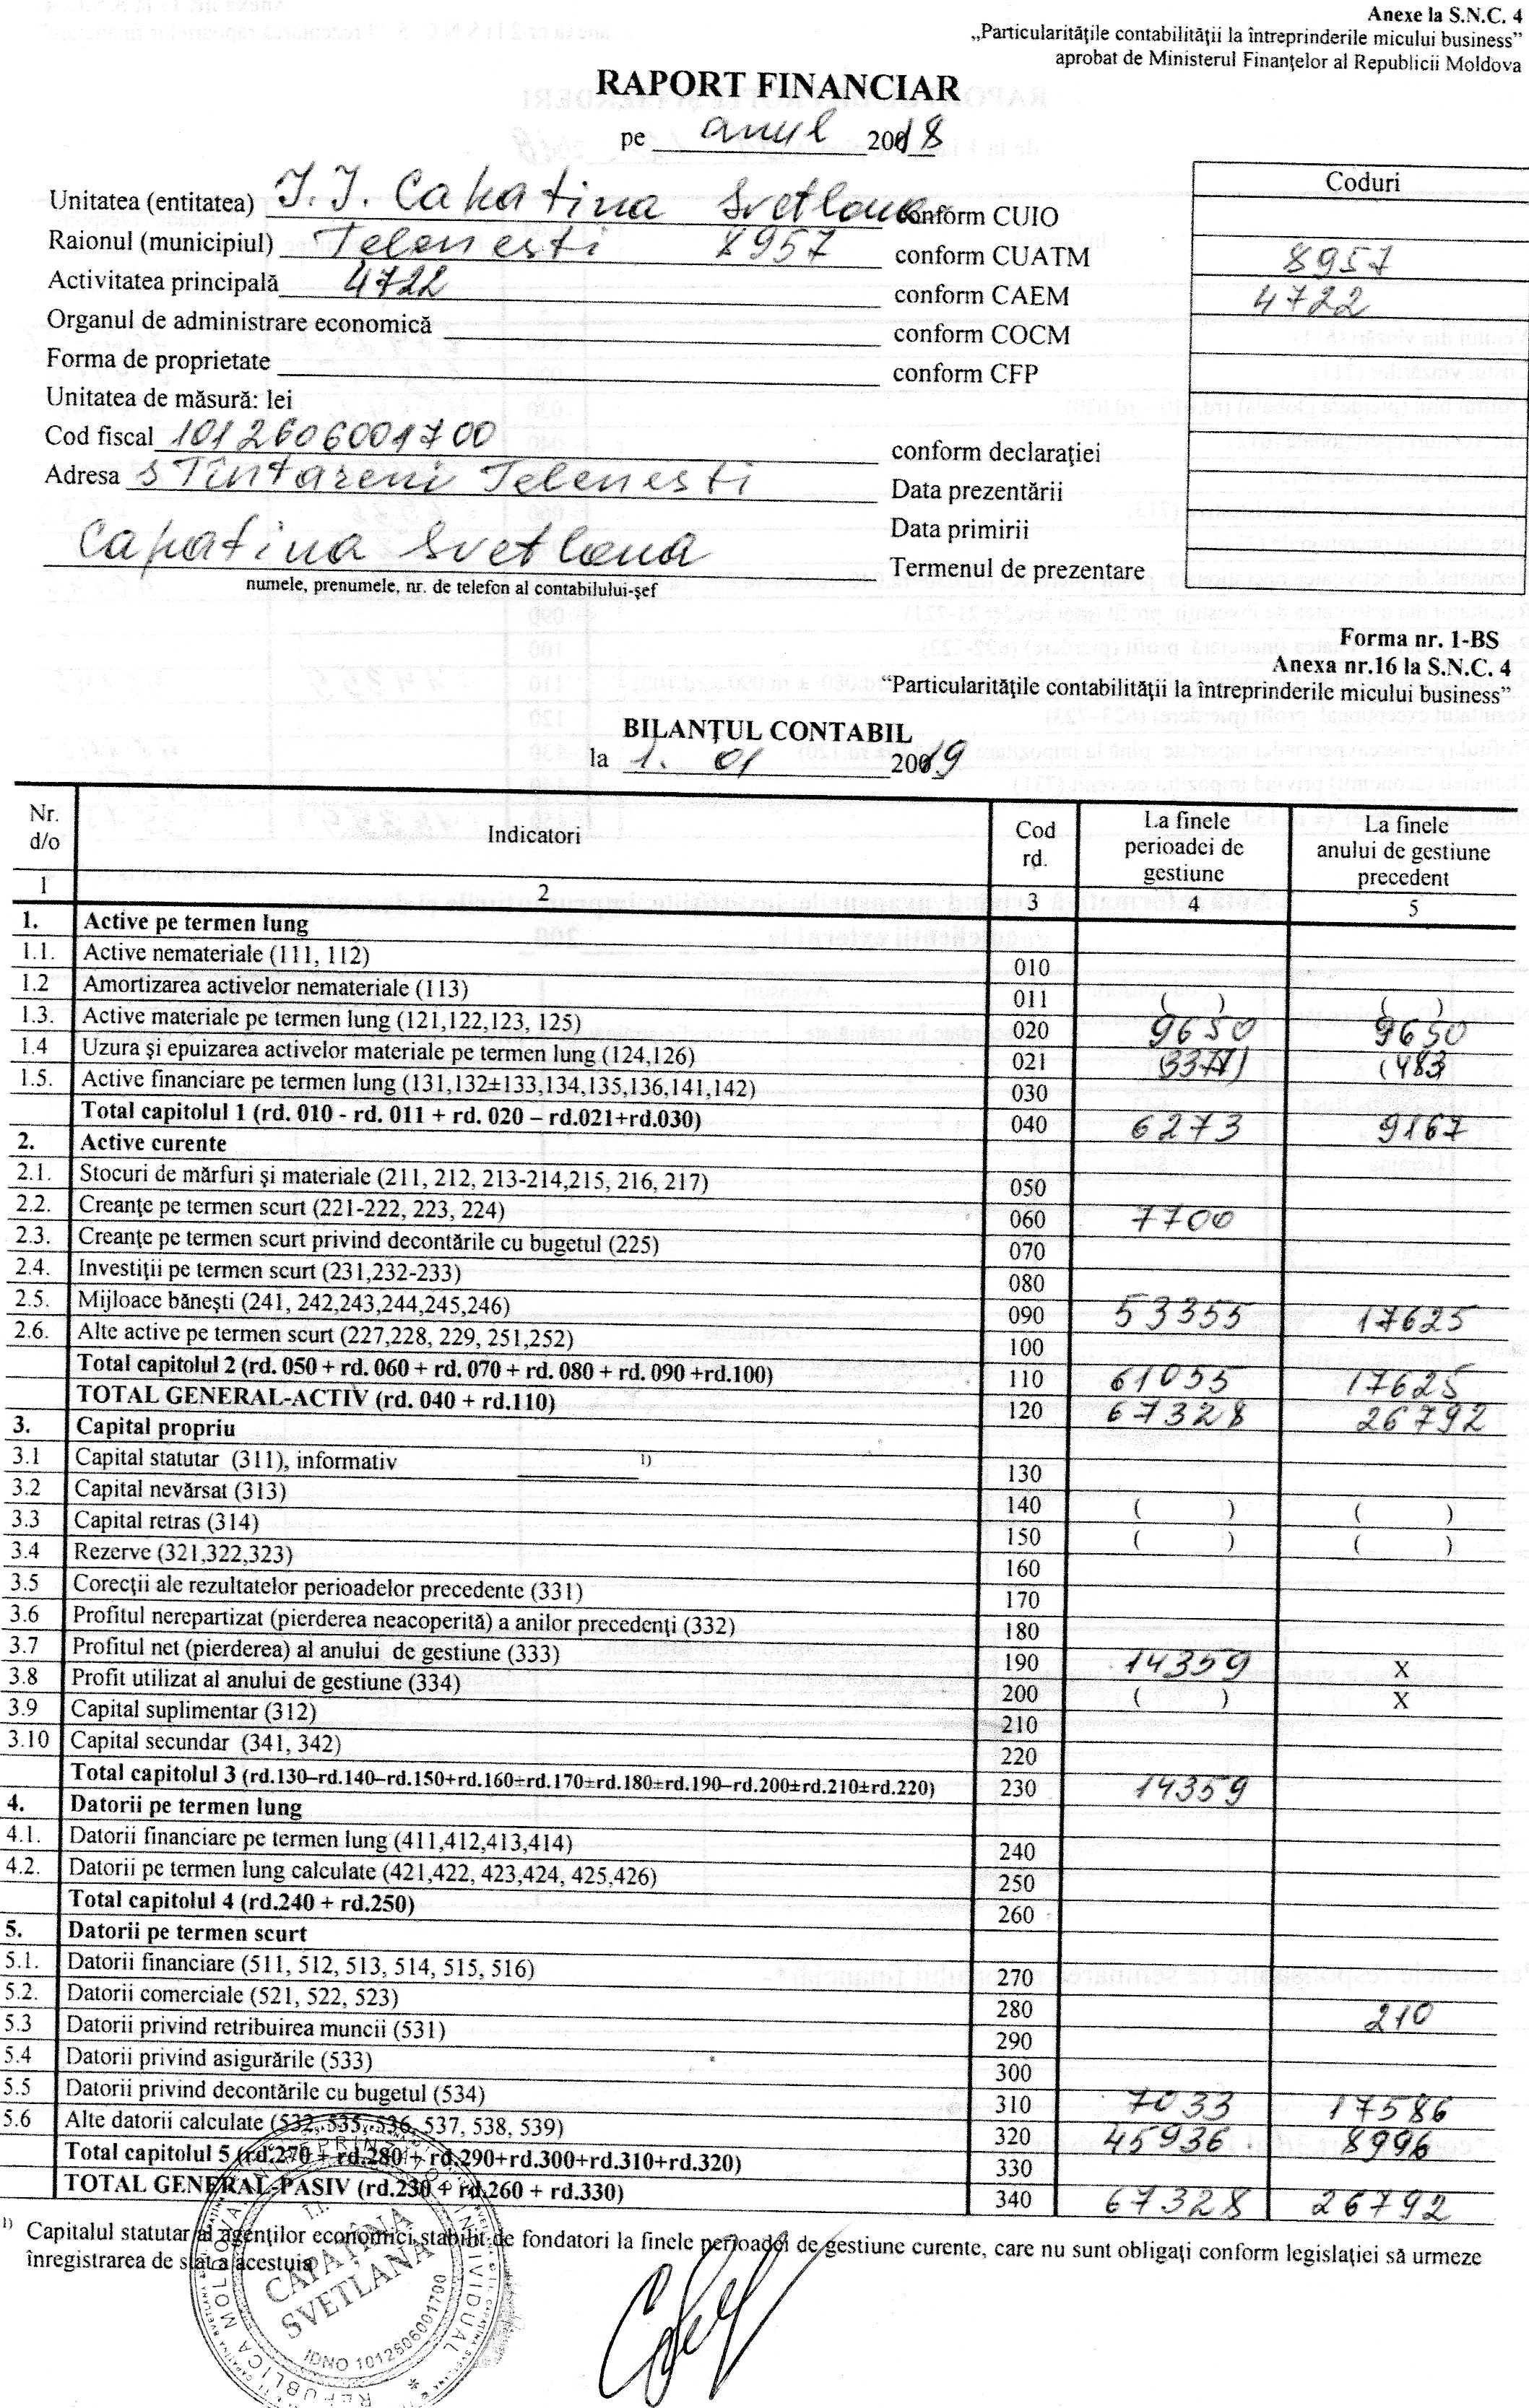 Anexe la S.N.C. 4
„Particularităţile contabilităţii la întreprinderile micului business”
aprobat de Ministerul Finanţelor al Republicii Moldova
RAPORT FINANCIAR
pe anul 20018
Coduri
Unitatea (entitatea) I.I. Capatina Svetlana conform CUIO
Raionul (municipiul) Telenesti 8957 conform CUATM 8957
Activitatea principală 4722 conform CAEM 4722
Organul de administrare economică conform COCM
Forma de proprietate conform CFP
Unitatea de măsură: lei
Cod fiscal 1012606001700 conform declaraţiei
Adresa s Tintareni Telenesti Data prezentării
Data primirii
Capatina Svetlana Termenul de prezentare
numele, prenumele, nr. de telefon al contabilului-şef
Forma nr. 1-BS
Anexa nr.16 la S.N.C. 4
“Particularităţile contabilităţii la întreprinderile micului business”
BILANŢUL CONTABIL
la 1. 01 20019
Nr. d/o Indicatori Cod rd. La finele perioadei de gestiune La finele anului de gestiune precedent
1 2 3 4 5
1. Active pe termen lung
1.1. Active nemateriale (111, 112) 010
1.2 Amortizarea activelor nemateriale (113) 011 ( ) ( )
1.3. Active materiale pe termen lung (121,122,123, 125) 020 9650 9650
1.4 Uzura şi epuizarea activelor materiale pe termen lung (124,126) 021 (3377) (483)
1.5. Active financiare pe termen lung (131,132±133,134,135,136,141,142) 030
Total capitolul 1 (rd. 010 - rd. 011 + rd. 020 – rd.021+rd.030) 040 6273 9167
2. Active curente
2.1. Stocuri de mărfuri şi materiale (211, 212, 213-214,215, 216, 217) 050
2.2. Creanţe pe termen scurt (221-222, 223, 224) 060 7700
2.3. Creanţe pe termen scurt privind decontările cu bugetul (225) 070
2.4. Investiţii pe termen scurt (231,232-233) 080
2.5. Mijloace băneşti (241, 242,243,244,245,246) 090 53355 17625
2.6. Alte active pe termen scurt (227,228, 229, 251,252) 100
Total capitolul 2 (rd. 050 + rd. 060 + rd. 070 + rd. 080 + rd. 090 +rd.100) 110 61055 17625
TOTAL GENERAL-ACTIV (rd. 040 + rd.110) 120 67328 26792
3. Capital propriu
3.1 Capital statutar (311), informativ ¹⁾ 130
3.2 Capital nevărsat (313) 140 ( ) ( )
3.3 Capital retras (314) 150 ( ) ( )
3.4 Rezerve (321,322,323) 160
3.5 Corecţii ale rezultatelor perioadelor precedente (331) 170
3.6 Profitul nerepartizat (pierderea neacoperită) a anilor precedenţi (332) 180
3.7 Profitul net (pierderea) al anului de gestiune (333) 190 14359 X
3.8 Profit utilizat al anului de gestiune (334) 200 ( ) X
3.9 Capital suplimentar (312) 210
3.10 Capital secundar (341, 342) 220
Total capitolul 3 (rd.130–rd.140–rd.150+rd.160±rd.170±rd.180±rd.190–rd.200±rd.210±rd.220) 230 14359
4. Datorii pe termen lung
4.1. Datorii financiare pe termen lung (411,412,413,414) 240
4.2. Datorii pe termen lung calculate (421,422, 423,424, 425,426) 250
Total capitolul 4 (rd.240 + rd.250) 260
5. Datorii pe termen scurt
5.1. Datorii financiare (511, 512, 513, 514, 515, 516) 270
5.2. Datorii comerciale (521, 522, 523) 280 210
5.3 Datorii privind retribuirea muncii (531) 290
5.4 Datorii privind asigurările (533) 300
5.5 Datorii privind decontările cu bugetul (534) 310 7033 17586
5.6 Alte datorii calculate (532, 535, 536, 537, 538, 539) 320 45936 8996
Total capitolul 5 (rd.270 + rd.280 + rd.290+rd.300+rd.310+rd.320) 330
TOTAL GENERAL-PASIV (rd.230 + rd.260 + rd.330) 340 67328 26792
¹⁾ Capitalul statutar al agenţilor economici stabilit de fondatori la finele perioadei de gestiune curente, care nu sunt obligaţi conform legislaţiei să urmeze
înregistrarea de stat a acestuia
Î.I.
CAPAŢÎNA
SVETLANA
IDNO 1012606001700
REPUBLICA MOLDOVA